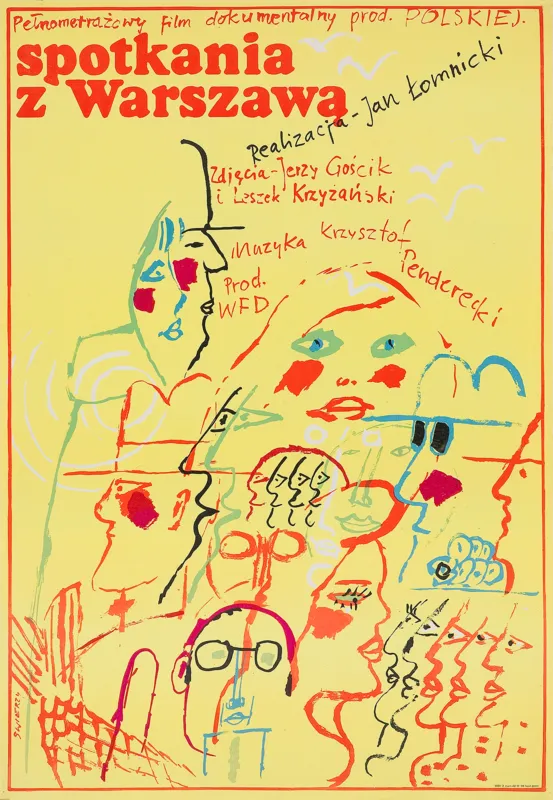 Pełnometrażowy film dokumentalny prod. POLSKIEJ.
spotkania
z Warszawą
Realizacja - Jan Łomnicki
Zdjęcia - Jerzy Gościk
i Leszek Krzyżański
Muzyka Krzysztof
Penderecki
Prod.
WFD